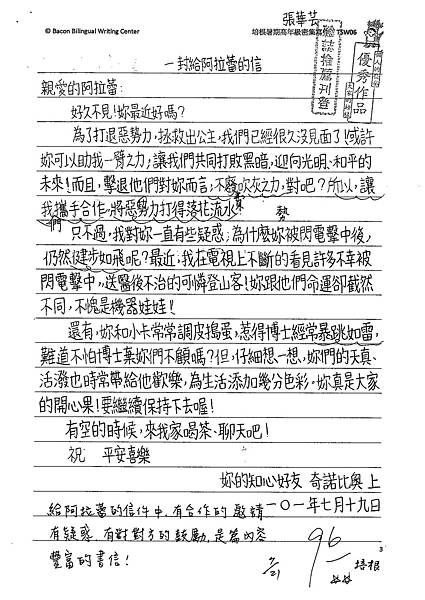 張華芸
© Bacon Bilingual Writing Center
培根暑期高年級密集寫
TSW06
雜誌推薦刊登
優秀作品
一封給阿拉蕾的信
親愛的阿拉蕾：
好久不見！妳最近好嗎？
為了打退惡勢力，拯救出公主，我們已經很久沒見面了！或許
妳可以助我一臂之力；讓我們共同打敗黑暗，迎向光明、和平的
未來！而且，擊退他們對妳而言，不廢吹灰之力，對吧？所以，讓
我攜手合作，將惡勢力打得落花流水
們
勢
只不過，我對妳一直有些疑惑：為什麼妳被閃電擊中後，
仍然健步如飛呢？最近，我在電視上不斷的看見許多不幸被
閃電擊中，送醫後不治的可憐登山客！妳跟他們命運卻截然
不同，不愧是機器娃娃！
還有，妳和小卡常常調皮搗蛋，惹得博士經常暴跳如雷，
難道不怕博士棄妳們不顧嗎？但，仔細想一想，妳們的天真、
活潑也時常帶給他歡樂，為生活添加幾分色彩，妳真是大家
的開心果！要繼續保持下去喔！
有空的時候，來我家喝茶、聊天吧！
祝 平安喜樂
妳的知心好友 奇諾比奧 上
一〇一年七月十九日
給阿拉蕾的信件中，有合作的邀請
有疑惑，有對對方的鼓勵，是篇內容
豐富的書信！
96
7/21
培根
3